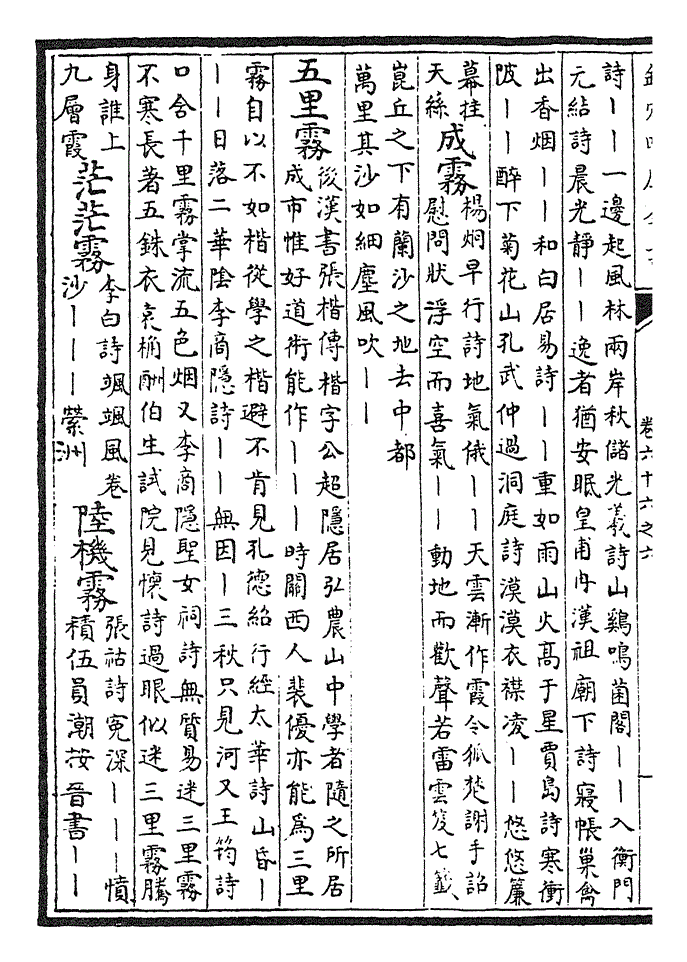 卷六十六之六
詩丨丨一邊起風林兩岸秋儲光羲詩山鷄鳴菌閣丨丨入衡門
元結詩晨光靜丨丨逸者猶安眠皇甫冉漢祖廟下詩寢帳巢禽
出香烟丨丨和白居易詩丨丨重如雨山火髙于星賈島詩寒衝
陂丨丨醉下菊花山孔武仲過洞庭詩漠漠衣襟凌丨丨悠悠簾
幕拄
天絲
成霧
楊炯早行詩地氣俄丨丨天雲漸作霞令狐楚謝手詔
慰問狀浮空而喜氣丨丨動地而歡聲若雷雲笈七籤
崑丘之下有蘭沙之地去中都
萬里其沙如細塵風吹丨丨
五里霧
後漢書張楷傳楷字公超隱居弘農山中學者隨之所居
成市惟好道術能作丨丨丨時關西人裴優亦能爲三里
霧自以不如楷從學之楷避不肯見孔德紹行經太華詩山昏丨
丨丨日落二華陰李商隱詩丨丨無因丨三秋只見河又王筠詩
口含千里霧掌流五色烟又李商隱聖女祠詩無質易迷三里霧
不寒長著五銖衣袁桷酬伯生試院見懷詩過眼似迷三里霧騰
身誰上
九層霞
茫茫霧
李白詩颯颯風卷
沙丨丨丨縈洲
陸機霧
張祜詩冤深丨丨丨憤
積伍員潮按晉書丨丨